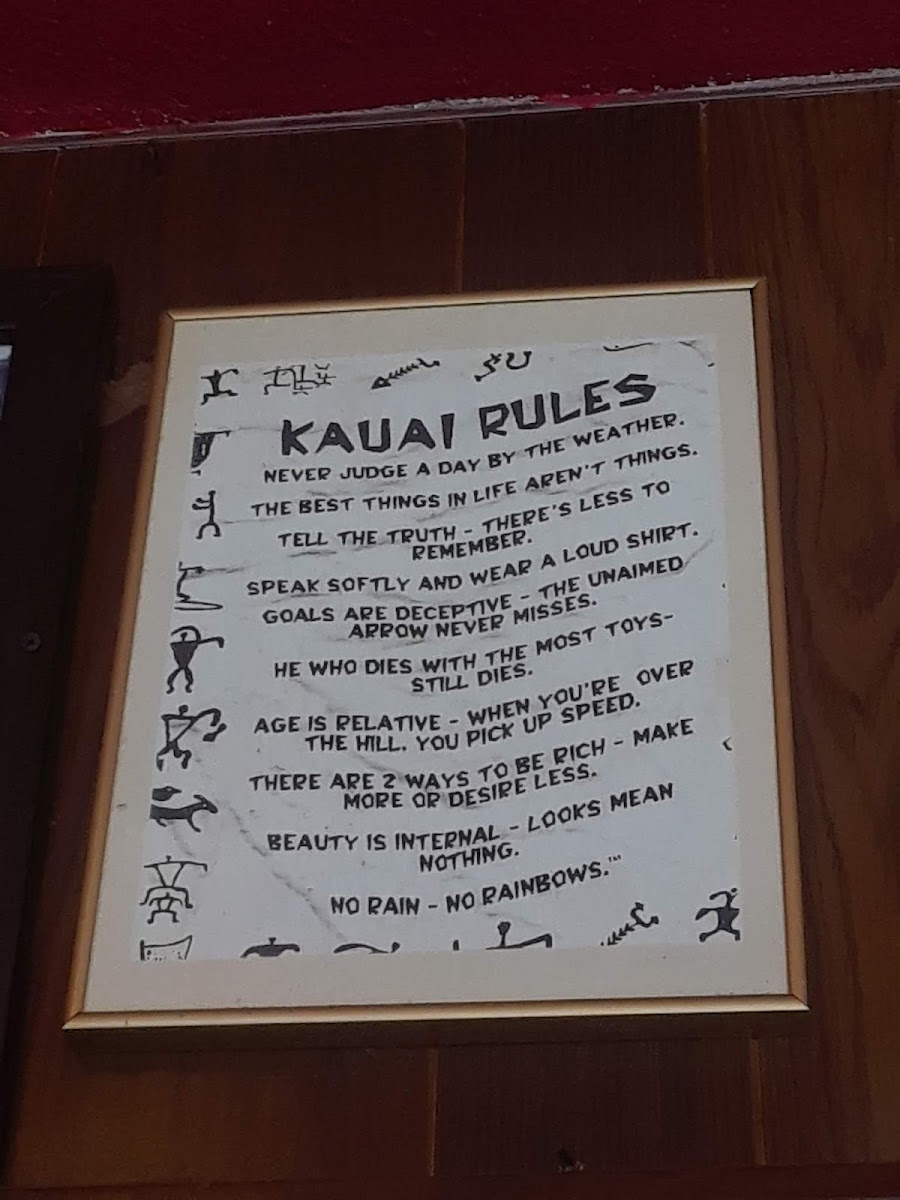 KAUAI RULES
NEVER JUDGE A DAY BY THE WEATHER.
THE BEST THINGS IN LIFE AREN'T THINGS.
TELL THE TRUTH - THERE'S LESS TO
REMEMBER.
SPEAK SOFTLY AND WEAR A LOUD SHIRT.
GOALS ARE DECEPTIVE - THE UNAIMED
ARROW NEVER MISSES.
HE WHO DIES WITH THE MOST TOYS-
STILL DIES.
AGE IS RELATIVE - WHEN YOU'RE OVER
THE HILL. YOU PICK UP SPEED.
THERE ARE 2 WAYS TO BE RICH - MAKE
MORE OR DESIRE LESS.
BEAUTY IS INTERNAL - LOOKS MEAN
NOTHING.
NO RAIN - NO RAINBOWS.™